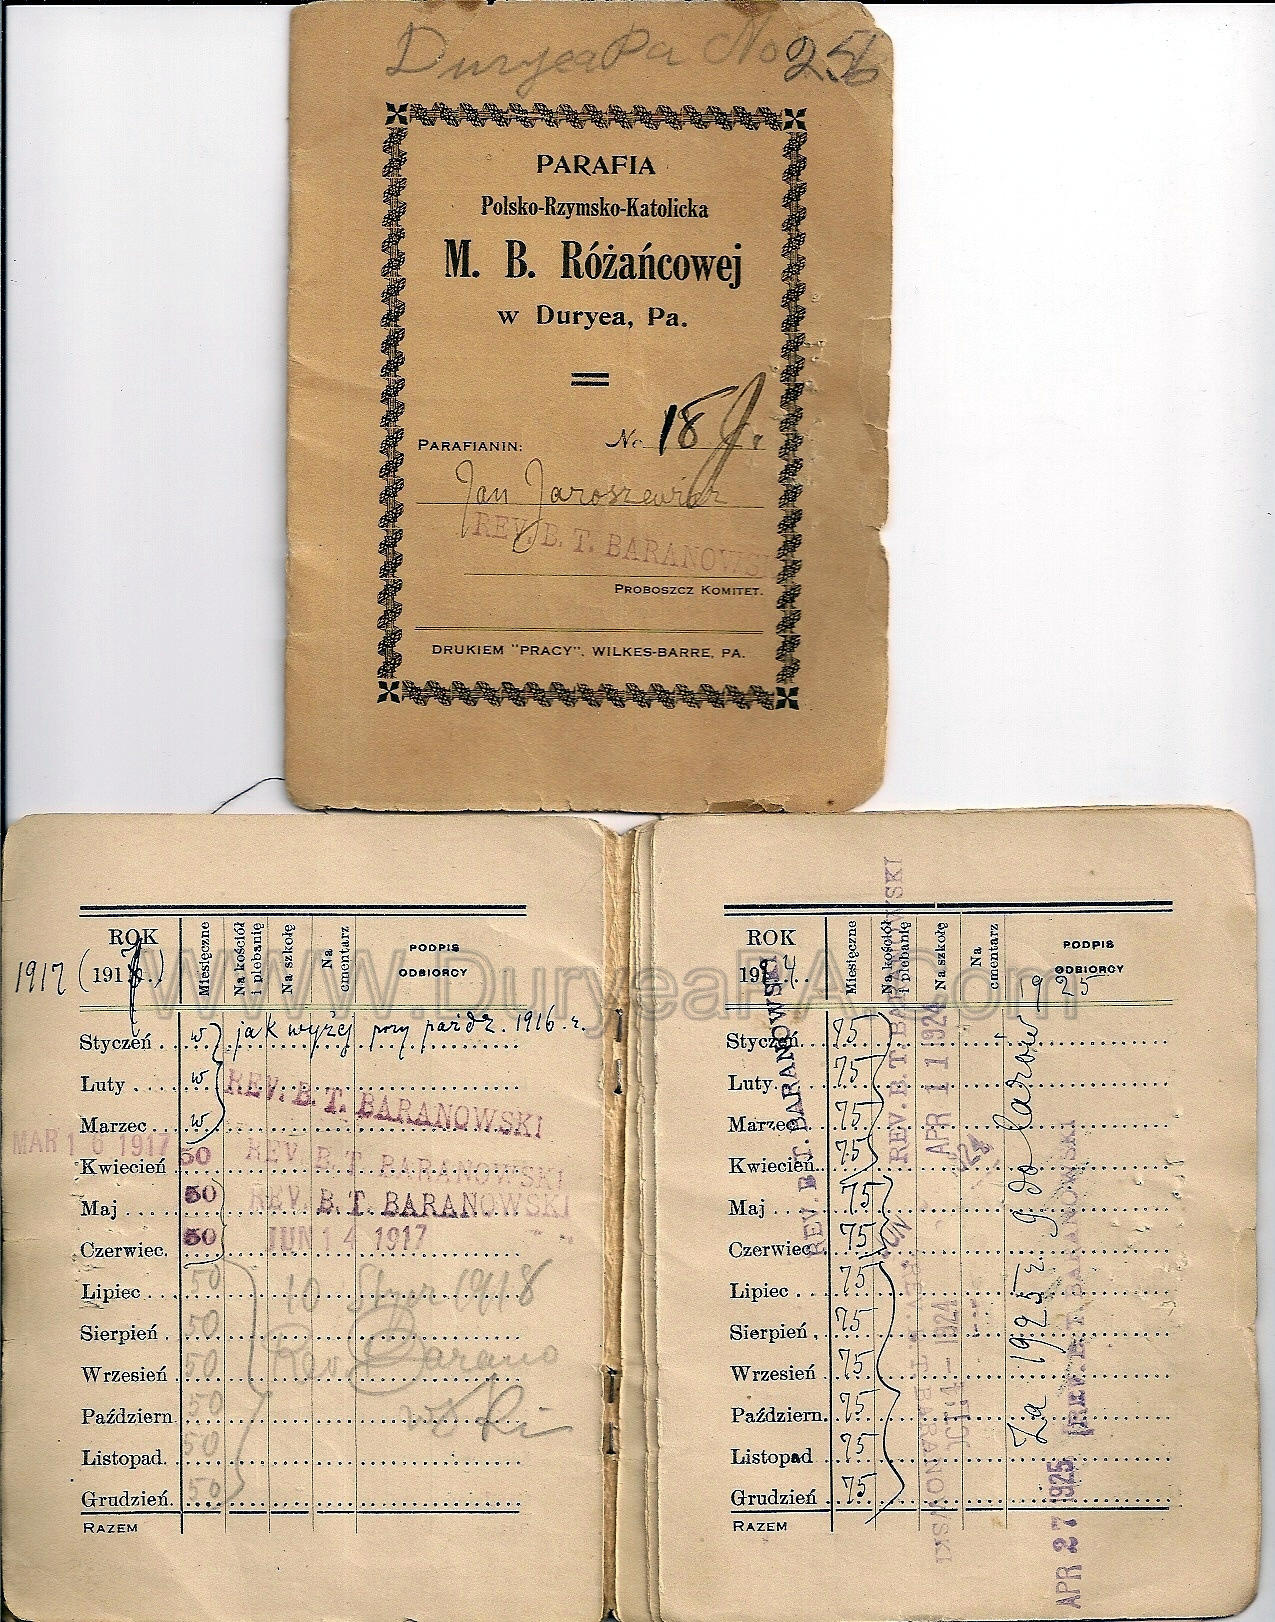 Duryea Pa No 256
PARAFIA
Polsko-Rzymsko-Katolicka
M. B. Różańcowej
w Duryea, Pa.
PARAFIANIN: No 18
Jan Jaroszewicz
REV. B. T. BARANOWSKI
PROBOSZCZ KOMITET.
DRUKIEM "PRACY", WILKES-BARRE, PA.
WWW.DuryeaPA.Com
ROK
1917 (191 )
Miesięczne
Na kościół i plebanię
Na szkołę
Na cmentarz
PODPIS ODBIORCY
Styczeń w jak wyżej przy paźdz. 1916 r.
Luty w
REV. B. T. BARANOWSKI
Marzec w
MAR 1 6 1917
Kwiecień 50 REV. B. T. BARANOWSKI
Maj 50 REV. B. T. BARANOWSKI
Czerwiec. 50 JUN 14 1917
Lipiec 50 10 Stycz 1918
Sierpień 50
Wrzesień 50 Rev. Barano
Październ 50 wski
Listopad. 50
Grudzień. 50
RAZEM
ROK
1924
Miesięczne
Na kościół i plebanię
Na szkołę
Na cmentarz
PODPIS ODBIORCY
1925
Styczeń 75
Luty 75
Marzec 75
Kwiecień 75
Maj 75
Czerwiec 75
Lipiec 75
Sierpień 75
Wrzesień 75
Październ. 75
Listopad 75
Grudzień 75
RAZEM
REV. B. T. BARANOWSKI
REV. B. T. BARANOWSKI
APR 11 1924
REV. B. T. BARANOWSKI
1924
Za 1925 r.
REV. B. T. BARANOWSKI
APR 27 1925